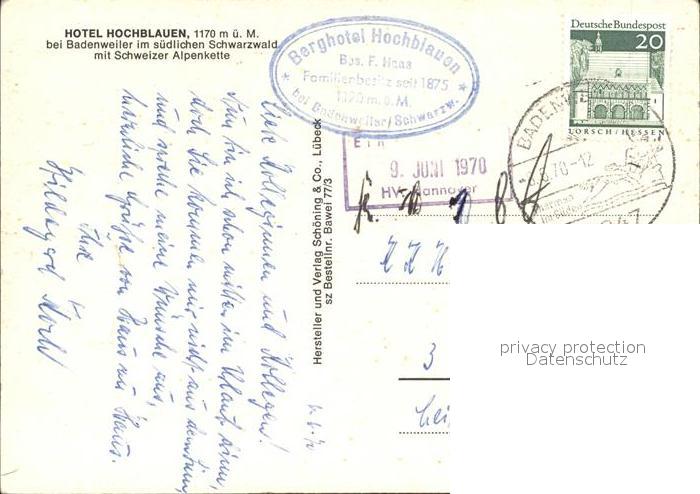 HOTEL HOCHBLAUEN, 1170 m ü. M.
bei Badenweiler im südlichen Schwarzwald
mit Schweizer Alpenkette
Berghotel Hochblauen
Bes. F. Hans
Familienbesitz seit 1875
1170 m. ü. M.
bei Badenweiler/Schwarzw.
Deutsche Bundespost
20
LORSCH/HESSEN
Ein
9. JUNI 1970
HV Hannover
BADEN
.70-12
847
Hersteller und Verlag Schöning & Co., Lübeck
sz Bestellnr. Bawei 77/3
Liebe Kolleginnen und Kollegen!
Nun bin ich schon mitten im Urlaub drin,
doch Sie kommen mir nicht aus dem Sinn,
und meine Wünsche aus,
herzliche Grüße von Haus zu Haus.
Ihre
Hildegard
3
privacy protection
Datenschutz